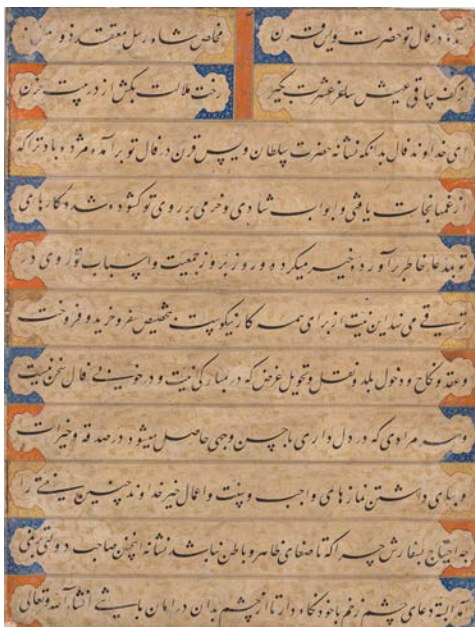 آمده در فال تو حضرت ویس قرن مخلص شاه رسل معتقد ذو المنن
از کف ساقی عیش ساغر عشرت بگیر رخت ملالت بکش از در بیت حزن
ای خداوند فال بدانکه نشانه حضرت سلطان ویس قرن در فال تو برآمده مژده باد ترا که
از غمها نجات یافتی و ابواب شادی و خرمی بر روی تو گشوده شد و کارهای
تو بمدعا خاطر برآورده خیر میگردد و روز بروز جمعیت و اسباب تو روی در
ترقی می نهد این نیت از برای همه کار نیکوست بتخصیص سفر و خرید و فروخت
و عقد و نکاح و دخول بلد و نقل و تحویل غرض که در مبارکی نیت و در خوبی فال سخن نیست
و هر مرادی که در دل داری باحسن وجهی حاصل میشود در صدقه و خیرات
و بپای داشتن نمازهای واجب و سنت و اعمال خیر خداوند چنین نیتی را
چه احتیاج بسفارش چرا که تا صفای ظاهر و باطن نباشد نشانه اینچنین صاحب دولتی نمی
آید البته دعای چشم زخم با خود نگاه دار تا از چشم بدان در امان باشی انشاء الله وتعالی